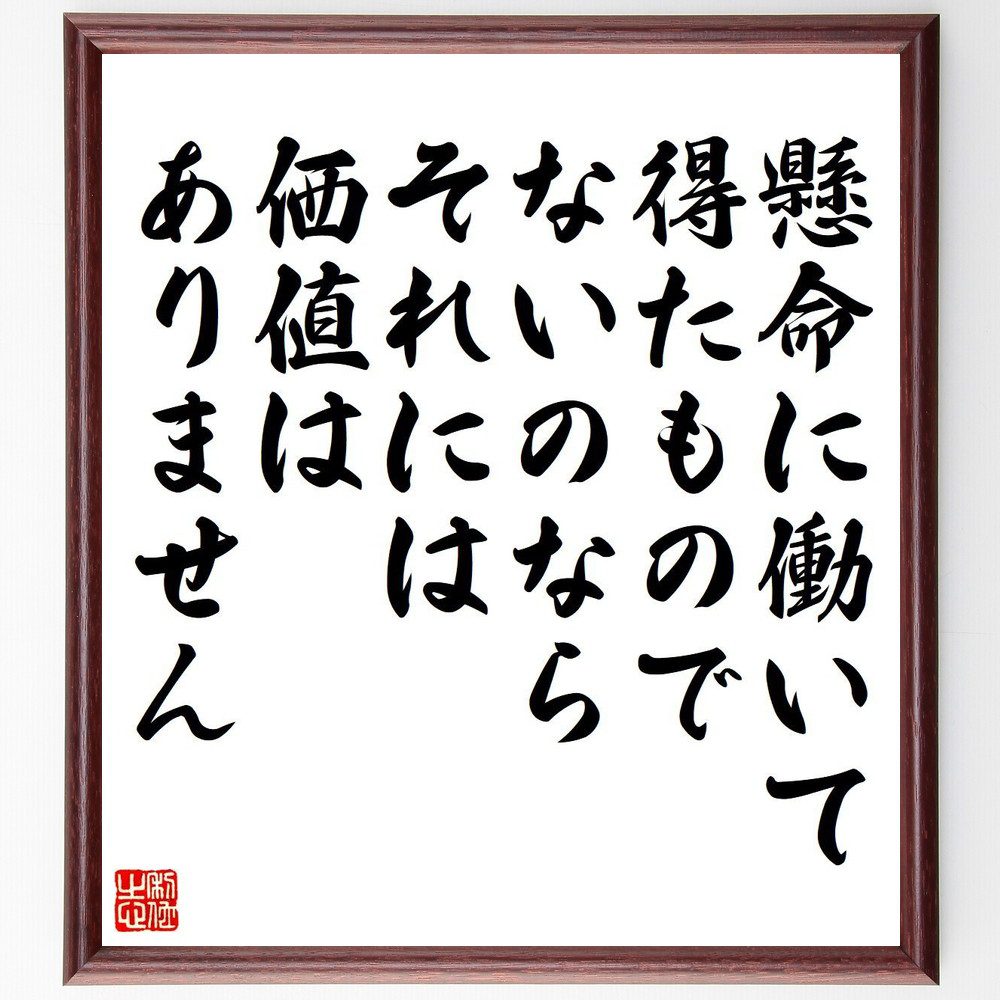 懸命に働いて
得たもので
ないのなら
それには
価値は
ありません